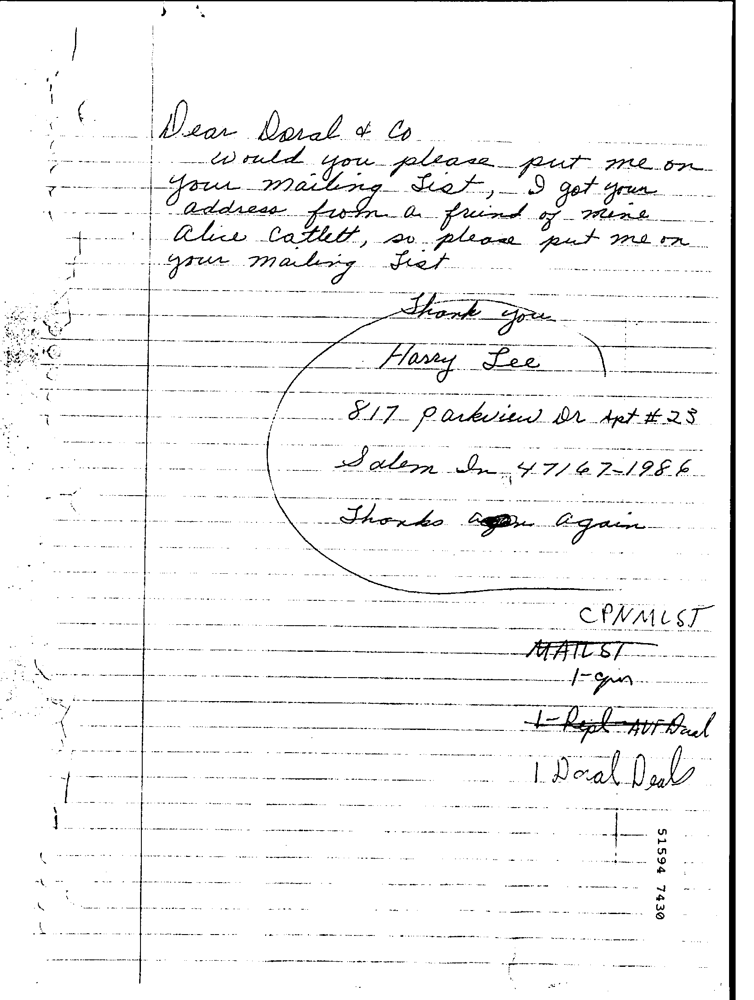 Dear Doral & Co
would you please put me on
your mailing List, I got your
address from a friend of mine
Alice Catlett, so please put me on
your mailing List
Thank you
Harry Lee
817 Parkview Dr Apt # 23
Salem In 47167-1986
Thanks again
CPNMLST
MAILST
1-
1-Repl
1 Doral Deals
51594 7430